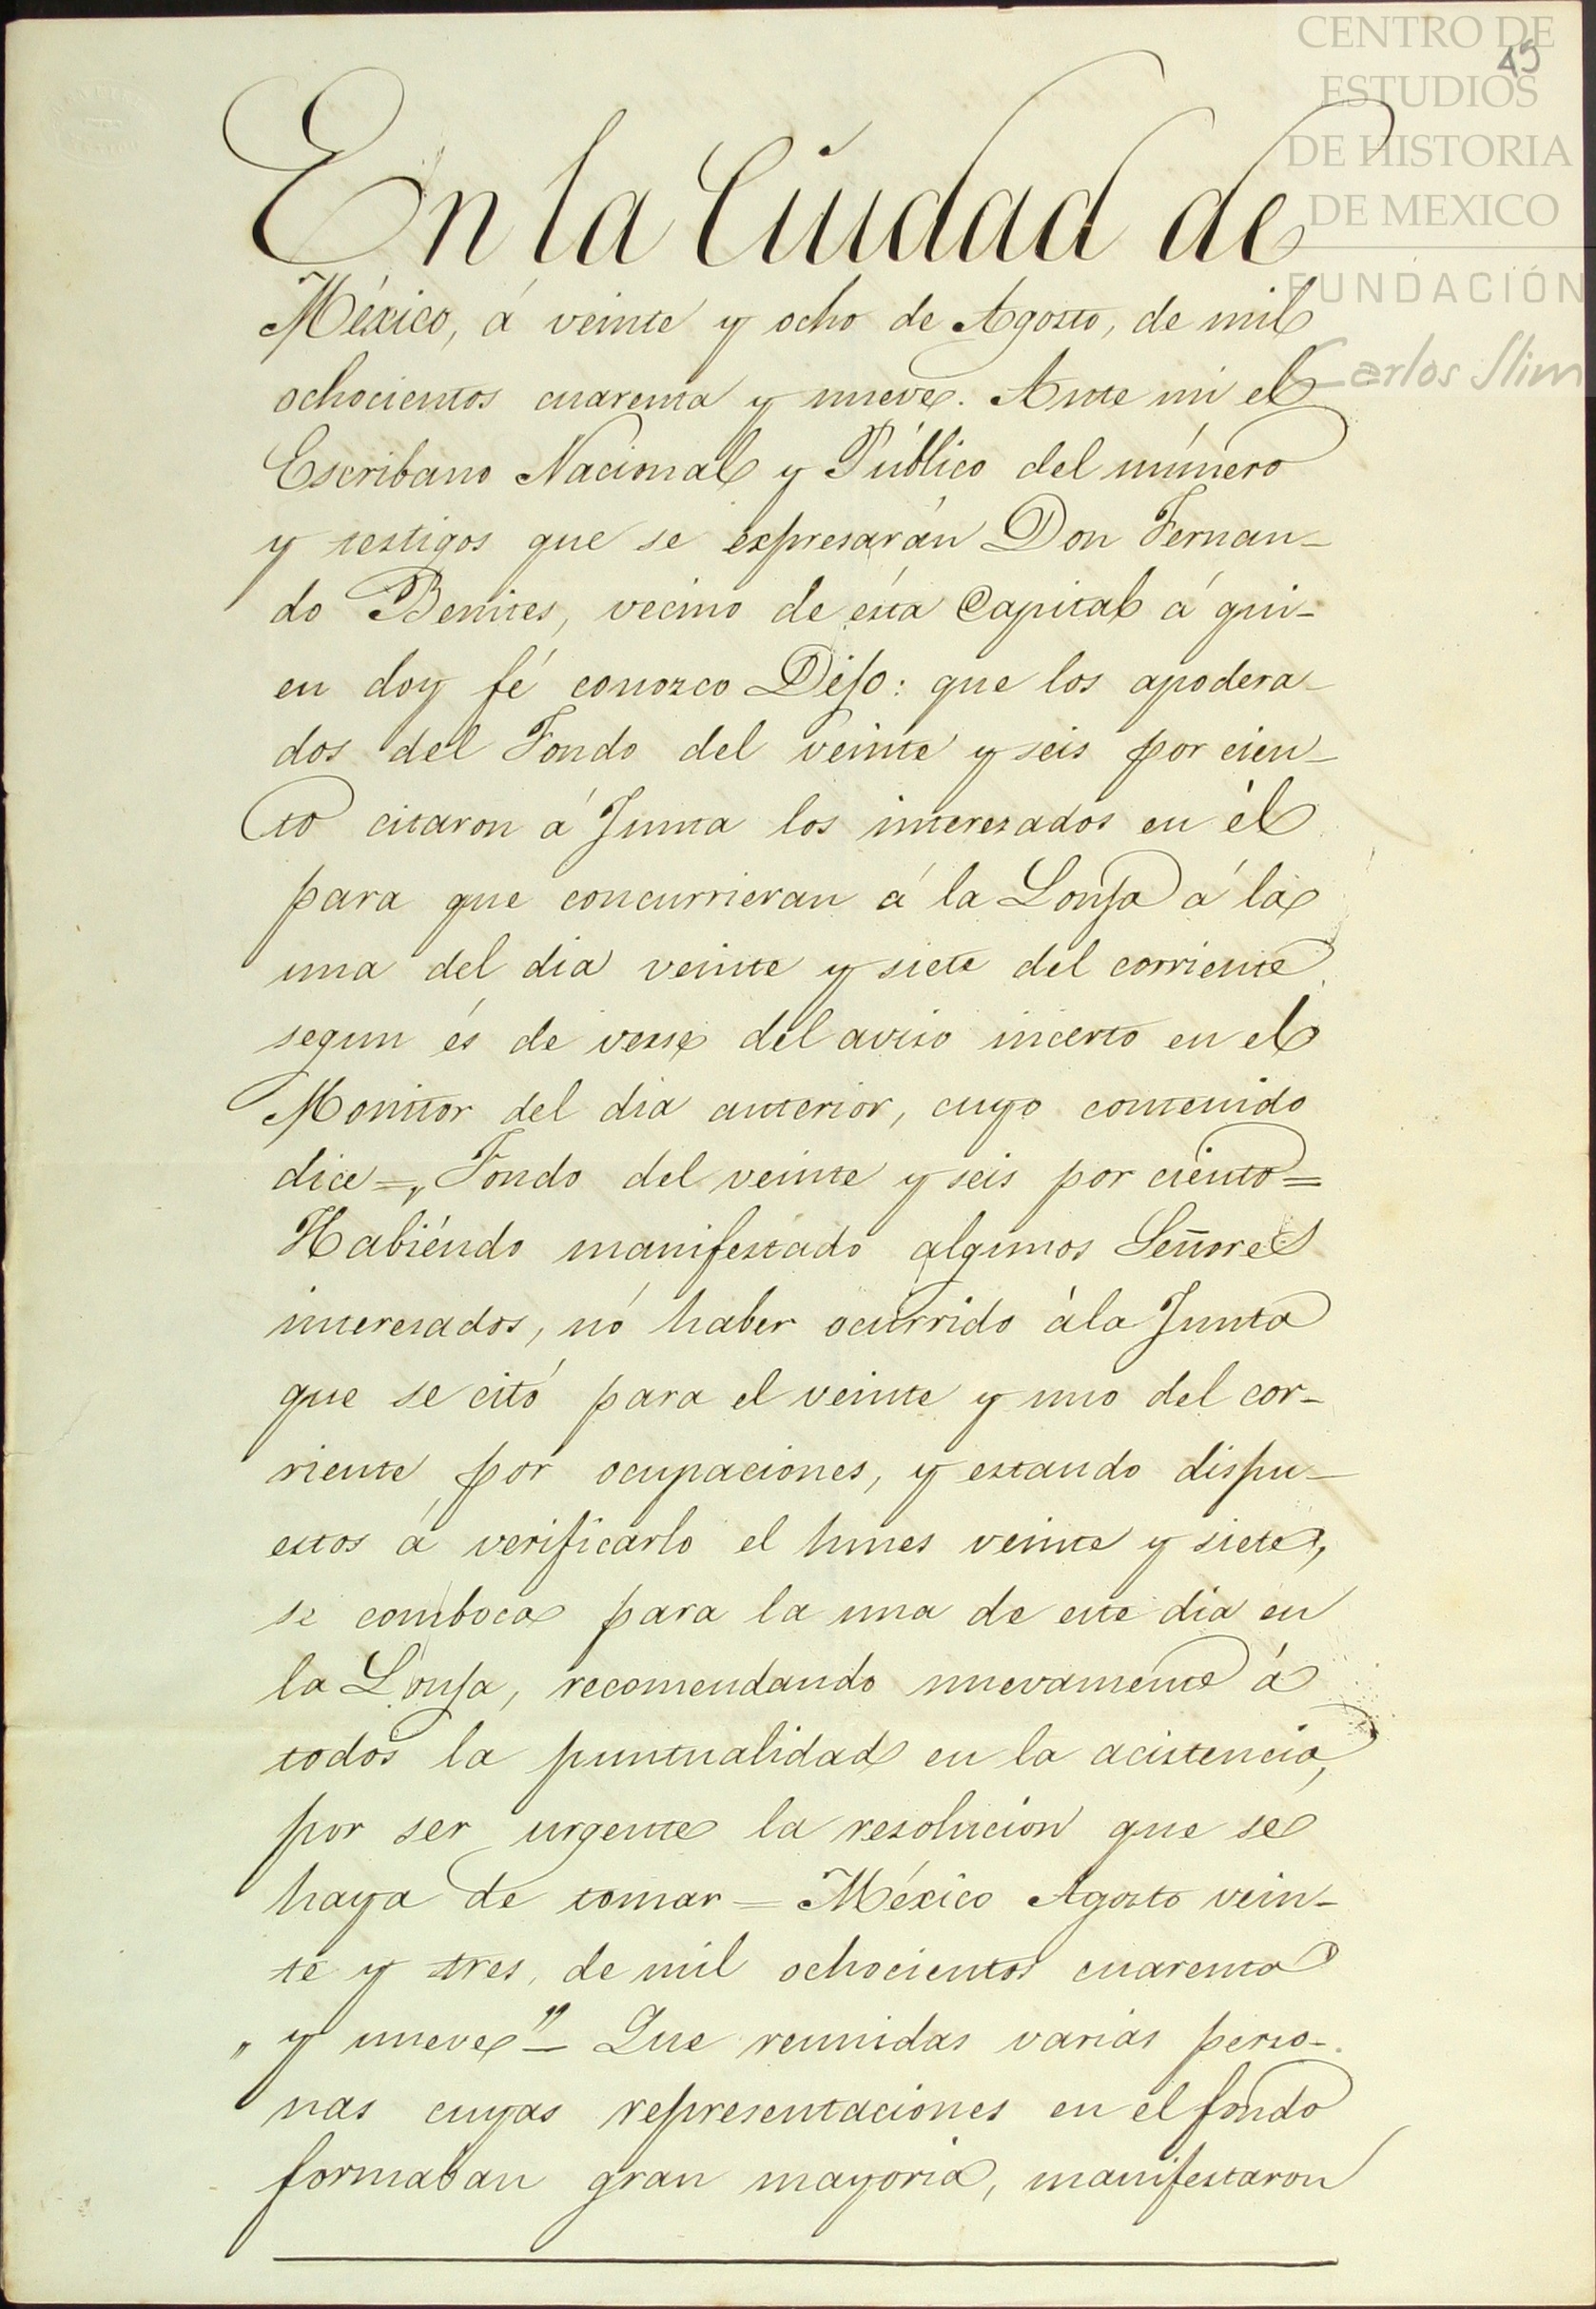 CENTRO DE
ESTUDIOS
DE HISTORIA
DE MEXICO
FUNDACIÓN
Carlos Slim
45
En la Ciudad de
México, á veinte y ocho de Agosto, de mil
ochocientos cuarenta y nueve. Ante mi el
Escribano Nacional y Público del número
y testigos que se expresarán Don Fernan-
do Benites, vecino de ésta Capital á qui-
en doy fé conozco Dijo: que los apodera-
dos del Fondo del veinte y seis por cien-
to citaron á Junta los interezados en él
para que concurrieran á la Lonja á la
una del dia veinte y siete del corriente
segun és de verse del aviso incerto en el
Monitor del dia anterior, cuyo contenido
dice=„ Fondo del veinte y seis por ciento=
Habiéndo manifestado algunos Señores
interesados, nó haber ocurrido àla Junta
que se citó para el veinte y uno del cor-
riente por ocupaciones, y estando dispu-
estos á verificarlo el lunes veinte y siete,
se comboca para la una de este dia en
la Lonja, recomendando nuevamente á
todos la puntualidad en la acistencia,
por ser urgente la resolucion que se
haya de tomar = México Agosto vein-
te y tres, de mil ochocientos cuarenta
„ y nueve" — Que reunidas varias perso-
nas cuyas representaciones en el fondo
formaban gran mayoria, manifestaron